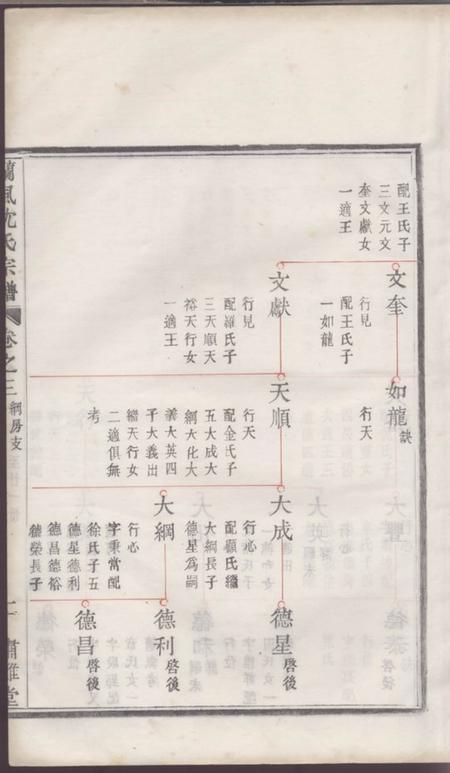 配王氏子
三文元文
奎文獻女
一適王
文奎
行見
配王氏子
一如龍
文獻
行見
配羅氏子
三天順天
裕天行女
一適王
如龍
缺
行天
天順
行天
配金氏子
五大成大
綱大化大
義大英四
子大義出
繼天行女
二適俱無
考
大成
行心
配顧氏繼
大綱長子
德星爲嗣
大綱
行心
字秉常配
徐氏子五
德星德利
德昌德裕
德榮長子
德星
啓後
德利
啓後
德昌
啓後
蘭風沈氏宗譜
卷之三
綱房支
肅雝堂